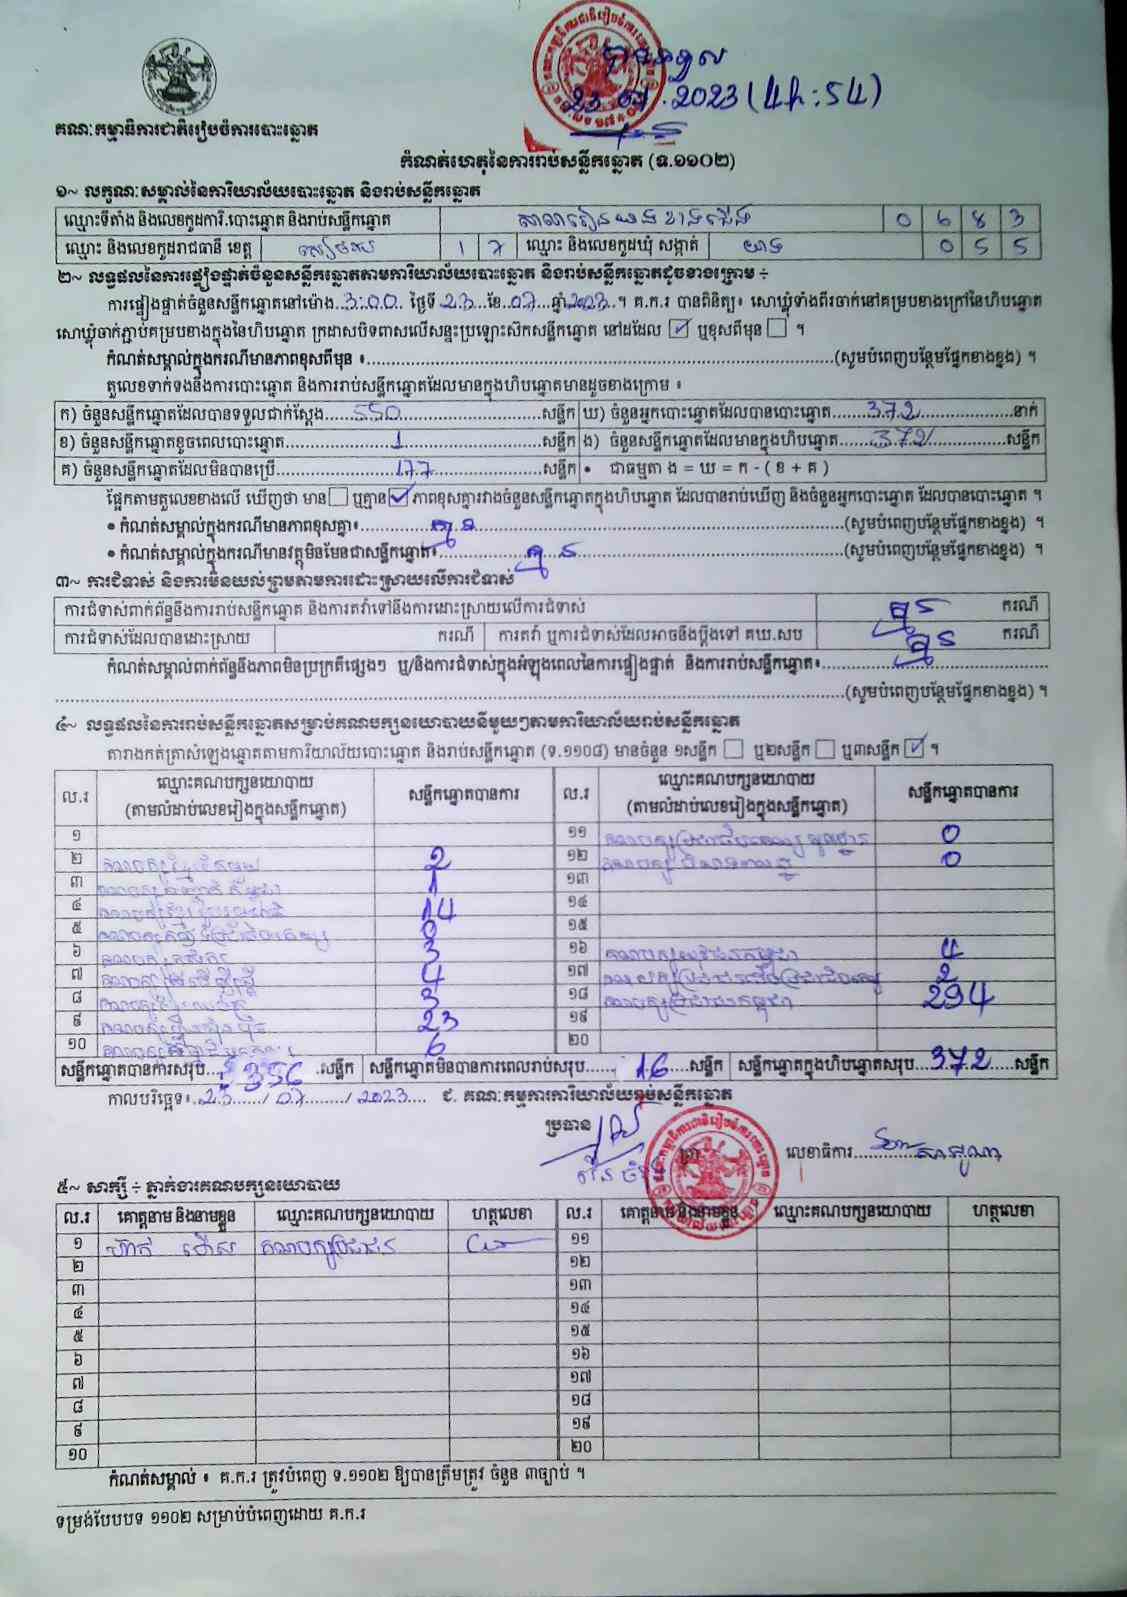 បានទទួល
23 07 . 2023 (4h:54)
គណៈកម្មាធិការជាតិរៀបចំការបោះឆ្នោត
កំណត់ហេតុនៃការរាប់សន្លឹកឆ្នោត (ទ.១១០២)
១~ លក្ខណៈសម្គាល់នៃការិយាល័យបោះឆ្នោត និងរាប់សន្លឹកឆ្នោត
ឈ្មោះទីតាំង និងលេខកូដការិ.បោះឆ្នោត និងរាប់សន្លឹកឆ្នោត 0 6 8 3
ឈ្មោះ និងលេខកូដរាជធានី ខេត្ត សៀមរាប 1 7 ឈ្មោះ និងលេខកូដឃុំ សង្កាត់ 0 5 5
២~ លទ្ធផលនៃការផ្ទៀងផ្ទាត់ចំនួនសន្លឹកឆ្នោតតាមការិយាល័យបោះឆ្នោត និងរាប់សន្លឹកឆ្នោតដូចខាងក្រោម ÷
ការផ្ទៀងផ្ទាត់ចំនួនសន្លឹកឆ្នោតនៅម៉ោង..3:00.. ថ្ងៃទី.23..ខែ.07...ឆ្នាំ.2023.។ គ.ក.រ បានពិនិត្យ៖ សោឃ្លុំទាំងពីរចាក់នៅគម្របខាងក្រៅនៃហិបឆ្នោត
សោឃ្លុំចាក់ភ្ជាប់គម្របខាងក្នុងនៃហិបឆ្នោត ក្រដាសបិទពាសលើសន្ទះប្រឡោះសឹកសន្លឹកឆ្នោត នៅដដែល ☑ ឬខុសពីមុន ☐ ។
កំណត់សម្គាល់ក្នុងករណីមានភាពខុសពីមុន ៖......(សូមបំពេញបន្ថែមផ្នែកខាងខ្នង) ។
តួលេខទាក់ទងនឹងការបោះឆ្នោត និងការរាប់សន្លឹកឆ្នោតដែលមានក្នុងហិបឆ្នោតមានដូចខាងក្រោម ៖
ក) ចំនួនសន្លឹកឆ្នោតដែលបានទទួលជាក់ស្តែង......550......សន្លឹក ឃ) ចំនួនអ្នកបោះឆ្នោតដែលបានបោះឆ្នោត......372......នាក់
ខ) ចំនួនសន្លឹកឆ្នោតខូចពេលបោះឆ្នោត......1......សន្លឹក ង) ចំនួនសន្លឹកឆ្នោតដែលមានក្នុងហិបឆ្នោត......372......សន្លឹក
គ) ចំនួនសន្លឹកឆ្នោតដែលមិនបានប្រើ......177......សន្លឹក • ជាធម្មតា ង = ឃ = ក - ( ខ + គ )
ផ្អែកតាមតួលេខខាងលើ ឃើញថា មាន ☐ ឬគ្មាន ☑ ភាពខុសគ្នារវាងចំនួនសន្លឹកឆ្នោតក្នុងហិបឆ្នោត ដែលបានរាប់ឃើញ និងចំនួនអ្នកបោះឆ្នោត ដែលបានបោះឆ្នោត ។
• កំណត់សម្គាល់ក្នុងករណីមានភាពខុសគ្នា៖......គ្មាន......(សូមបំពេញបន្ថែមផ្នែកខាងខ្នង) ។
• កំណត់សម្គាល់ក្នុងករណីមានវត្ថុមិនមែនជាសន្លឹកឆ្នោត៖......គ្មាន......(សូមបំពេញបន្ថែមផ្នែកខាងខ្នង) ។
៣~ ការជំទាស់ និងការមិនយល់ព្រមតាមការដោះស្រាយលើការជំទាស់
ការជំទាស់ពាក់ព័ន្ធនឹងការរាប់សន្លឹកឆ្នោត និងការតវ៉ាទៅនឹងការដោះស្រាយលើការជំទាស់ គ្មាន ករណី
ការជំទាស់ដែលបានដោះស្រាយ ករណី ការតវ៉ា ឬការជំទាស់ដែលអាចនឹងប្តឹងទៅ គឃ.សប គ្មាន ករណី
កំណត់សម្គាល់ពាក់ព័ន្ធនឹងភាពមិនប្រក្រតីផ្សេងៗ ឬ/និងការជំទាស់ក្នុងអំឡុងពេលនៃការផ្ទៀងផ្ទាត់ និងការរាប់សន្លឹកឆ្នោត៖......
......(សូមបំពេញបន្ថែមផ្នែកខាងខ្នង) ។
៤~ លទ្ធផលនៃការរាប់សន្លឹកឆ្នោតសម្រាប់គណបក្សនយោបាយនីមួយៗតាមការិយាល័យរាប់សន្លឹកឆ្នោត
តារាងកត់ត្រាសំឡេងឆ្នោតតាមការិយាល័យបោះឆ្នោត និងរាប់សន្លឹកឆ្នោត (ទ.១១០៨) មានចំនួន ១សន្លឹក ☐ ឬ២សន្លឹក ☐ ឬ៣សន្លឹក ☑ ។
ល.រ ឈ្មោះគណបក្សនយោបាយ (តាមលំដាប់លេខរៀងក្នុងសន្លឹកឆ្នោត) សន្លឹកឆ្នោតបានការ ល.រ ឈ្មោះគណបក្សនយោបាយ (តាមលំដាប់លេខរៀងក្នុងសន្លឹកឆ្នោត) សន្លឹកឆ្នោតបានការ
១ ១១ គណបក្ស 0
២ គណបក្ស 2 ១២ គណបក្ស 0
៣ គណបក្ស 1 ១៣
៤ គណបក្ស 14 ១៤
៥ គណបក្ស 0 ១៥
៦ គណបក្ស 3 ១៦ គណបក្ស 4
៧ គណបក្ស 4 ១៧ គណបក្ស 2
៨ គណបក្ស 3 ១៨ គណបក្សប្រជាជនកម្ពុជា 294
៩ គណបក្ស 23 ១៩
១០ គណបក្ស 6 ២០
សន្លឹកឆ្នោតបានការសរុប...356...សន្លឹក សន្លឹកឆ្នោតមិនបានការពេលរាប់សរុប......16......សន្លឹក សន្លឹកឆ្នោតក្នុងហិបឆ្នោតសរុប...372......សន្លឹក
កាលបរិច្ឆេទ៖..23....../ 07......../ 2023.... ជ. គណៈកម្មការការិយាល័យរាប់សន្លឹកឆ្នោត
ប្រធាន
លេខាធិការ............
៥~ សាក្សី ÷ ភ្នាក់ងារគណបក្សនយោបាយ
ល.រ គោត្តនាម និងនាមខ្លួន ឈ្មោះគណបក្សនយោបាយ ហត្ថលេខា ល.រ គោត្តនាម និងនាមខ្លួន ឈ្មោះគណបក្សនយោបាយ ហត្ថលេខា
១ គណបក្សប្រជាជន ១១
២ ១២
៣ ១៣
៤ ១៤
៥ ១៥
៦ ១៦
៧ ១៧
៨ ១៨
៩ ១៩
១០ ២០
កំណត់សម្គាល់ ៖ គ.ក.រ ត្រូវបំពេញ ទ.១១០២ ឱ្យបានត្រឹមត្រូវ ចំនួន ៣ច្បាប់ ។
ទម្រង់បែបបទ ១១០២ សម្រាប់បំពេញដោយ គ.ក.រ